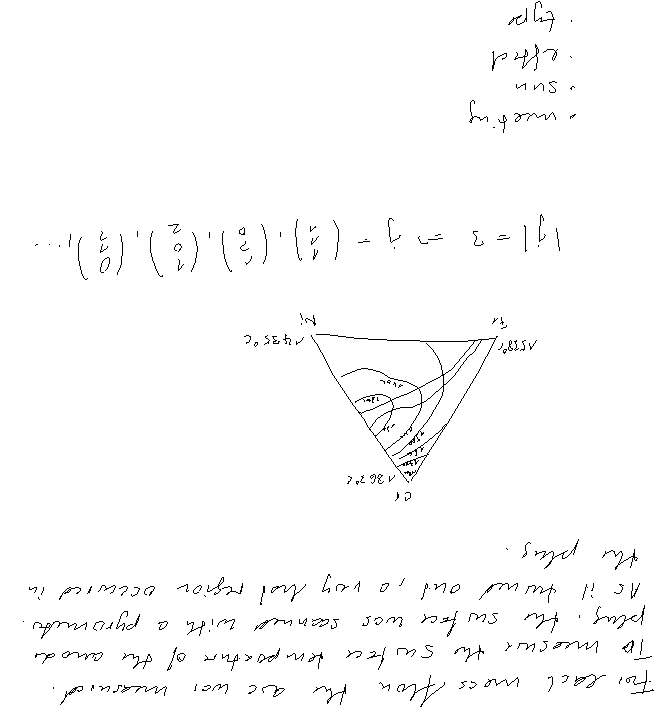 For each mass flow the arc was measured.
To measure the surface temperature of the anode
plug, the surface was scanned with a pyrometer.
As it turned out, a very hot region occurred in
the plug.
Cr
1863°C
Fe
1538°C
Ni
1435°C
|y| = 3 ⇒ y = (1 1 1), (1 2 0), (1 0 2), (0 1 2), ...
• meeting
• sun
• effect
• type